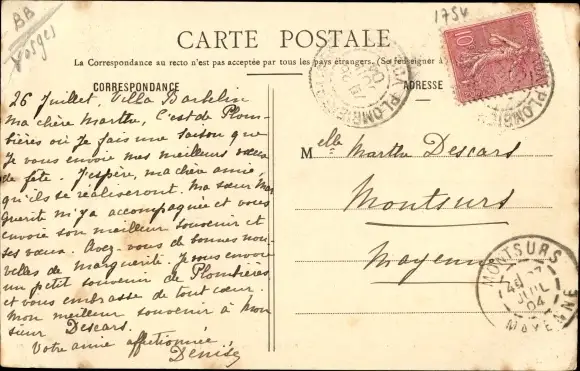 BB
Vosges
1754
CARTE POSTALE
La Correspondance au recto n'est pas acceptée par tous les pays étrangers. (Se renseigner à
CORRESPONDANCE
ADRESSE
26 Juillet, Villa
Ma chère Marthe, C'est de Plom-
bières où je fais une saison que
Je vous envoie mes meilleurs vœux
de fête. J'espère, ma chère amie,
qu'ils se réaliseront. Ma sœur Mar
guerit m'y a accompagnée et vous
envoie son meilleur souvenir et
ses vœux. Avez-vous de bonnes nou-
velles de marguerite. Je vous envoie
un petit souvenir de Plombières
et vous embrasse de tout cœur.
Mon meilleur souvenir à Mon
sieur Descars.
Votre amie affectionnée,
Denise
Melle Marthe Descars
Montsurs
Mayenne
10
PLOMBIÈRES
MONTSURS
27
JUIL
04
MAYENNE